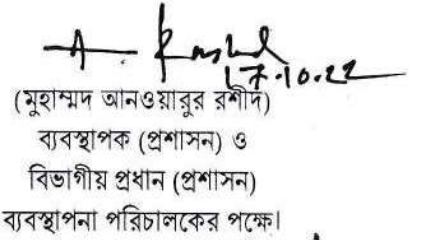 17.10.22
(মুহাম্মদ আনওয়ারুর রশীদ)
ব্যবস্থাপক (প্রশাসন) ও
বিভাগীয় প্রধান (প্রশাসন)
ব্যবস্থাপনা পরিচালকের পক্ষে।